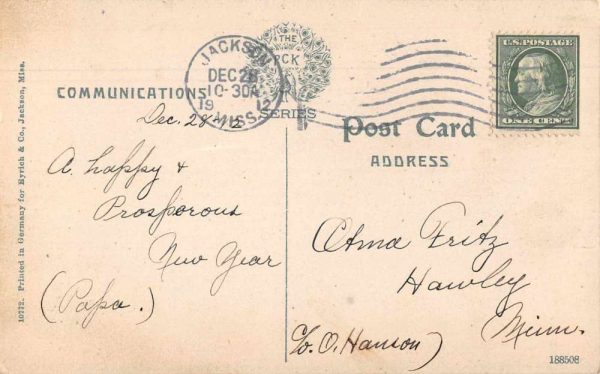 COMMUNICATIONS
JACKSON
DEC 28
10-30A
1912
MISS.
THE
PCK
SERIES
U.S. POSTAGE
ONE CENT
Post Card
ADDRESS
Dec. 28-12
A happy &
Prosporous
New Year
(Papa.)
Fritz
Hawley
Minn.
(c/o. O. Hanson)
10772. Printed in Germany for Eyrich & Co., Jackson, Miss.
188508